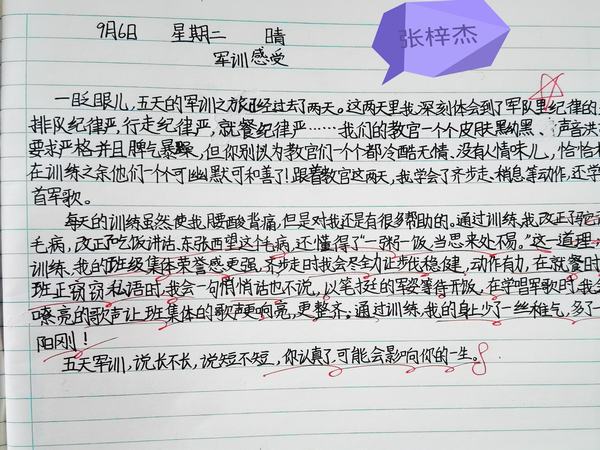 9月6日 星期二 晴
张梓杰
军训感受
一眨眼儿,五天的军训之旅已经过去了两天。这两天里我深刻体会到了军队里纪律的
排队纪律严,行走纪律严,就餐纪律严……我们的教官一个个皮肤黑黝黑、声音洪
要求严格并且脾气暴躁,但你别以为教官们个个都冷酷无情、没有人情味儿,恰恰
在训练之余他们个个可幽默可和善了!跟着教官这两天,我学会了齐步走、稍息等动作,还学
首军歌。
每天的训练虽然使我腰酸背痛,但是对我还是有很多帮助的。通过训练,我改正了驼
毛病,改正了吃饭讲话、东张西望这个毛病,还懂得了“一粥一饭,当思来处不易。”这一道理
训练,我的班级集体荣誉感更强,齐步走时我会尽全力让步伐稳健,动作有力,在就餐时
班正窃窃私语时,我会一句悄悄话也不说,以笔挺的军姿等待开饭,在学唱军歌时,我会
嘹亮的歌声让班集体的歌声更响亮,更整齐。通过训练,我的身上少了一丝稚气,多了一
阳刚!
五天军训,说长不长,说短不短,你认真了,可能会影响你的一生。